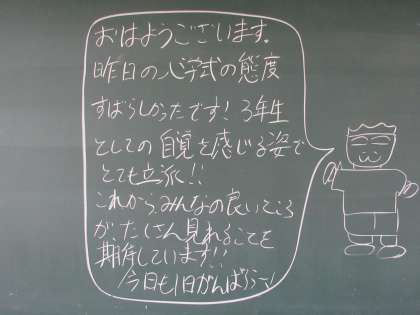 おはようございます。
昨日の入学式の態度
すばらしかったです! 3年生
としての自覚を感じる姿で
とても立派!!
これからみんなの良いところ
が、たくさん見れることを
期待しています!!
今日も1日がんばろう〜!